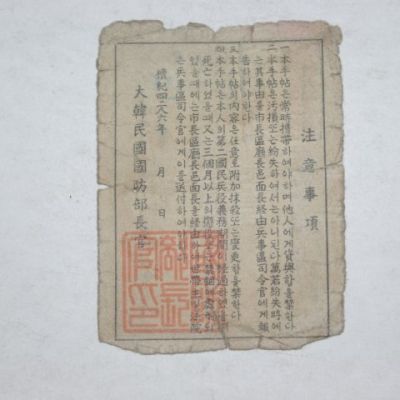 注意事項
一 本手帖은常時携帶하여야하며他人에게貸與함을禁한다
二 本手帖은汚損또는紛失하여서는아니된다萬若紛失時에
는其事由를市長區廳長邑面長經由兵事區司令官에게報
告하여야한다
三 本手帖의內容은任意로附加抹殺또는變更함을禁한다
四 本手帖은本人의第二國民兵役義務期間이經過하였을때
死亡하였을때又는三個月以上의懲役또는禁錮에處하
있을때에는市長區廳長邑面長을經由하여世帶主또는法院
은兵事區司令官에게이를返付하여야한다
檀紀四二八六年 月 日
大韓民國國防部長官